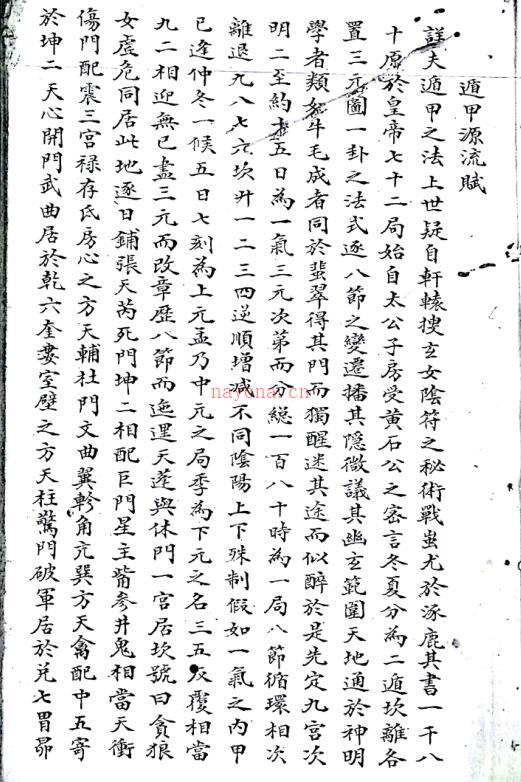 遁甲源流賦
詳夫遁甲之法上世疑自軒轅搜玄女陰符之秘術戰蚩尤於涿鹿其書一千八
十原於皇帝七十二局始自太公子房受黃石公之密言冬夏分為二遁坎離各
置三元圖一卦之法式逐八節之變遷播其隱微議其幽玄範圍天地通於神明
學者類如牛毛成者同於蜚翠得其門而獨醒迷其途而似醉於是先定九宮次
明二至約十五日為一氣三元次第而分總一百八十時為一局八節循環相次
離退九八七六坎升一二三四逆順增減不同陰陽上下殊制假如一氣之內甲
已逢仲冬一候五日七刻為上元孟乃中元之局季為下元之名三五反覆相當
九二相迎無已盡三元而改章歷八節而迤邐天蓬與休門一宮居坎號曰貪狼
女虛危同居此地逐日鋪張天芮死門坤二相配巨門星主觜參井鬼相當天衝
傷門配震三宮祿存氐房心之方天輔杜門文曲翼軫角亢巽方天禽配中五寄
於坤二天心開門武曲居於乾六奎婁室壁之方天柱驚門破軍居於兌七胃昴
nayuna.cn